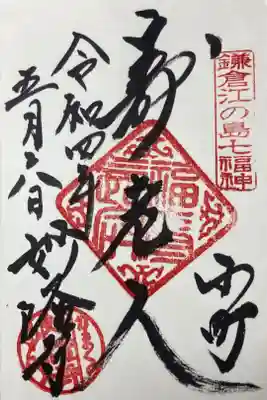 鎌倉江の島七福神
小町
寿老人
令和四年
五月六日妙隆寺